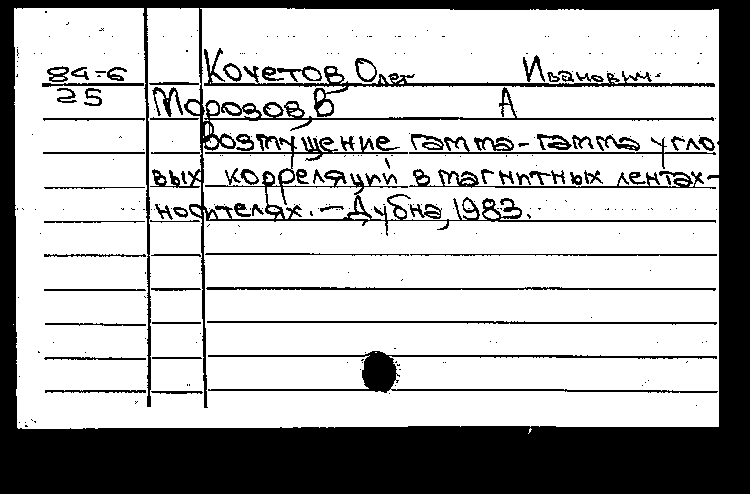 84-6 Кочетов, Олег Иванович.
25 Морозов, В А
Возмущение гамма-гамма угло
вых корреляций в магнитных лентах-
носителях. - Дубна, 1983.